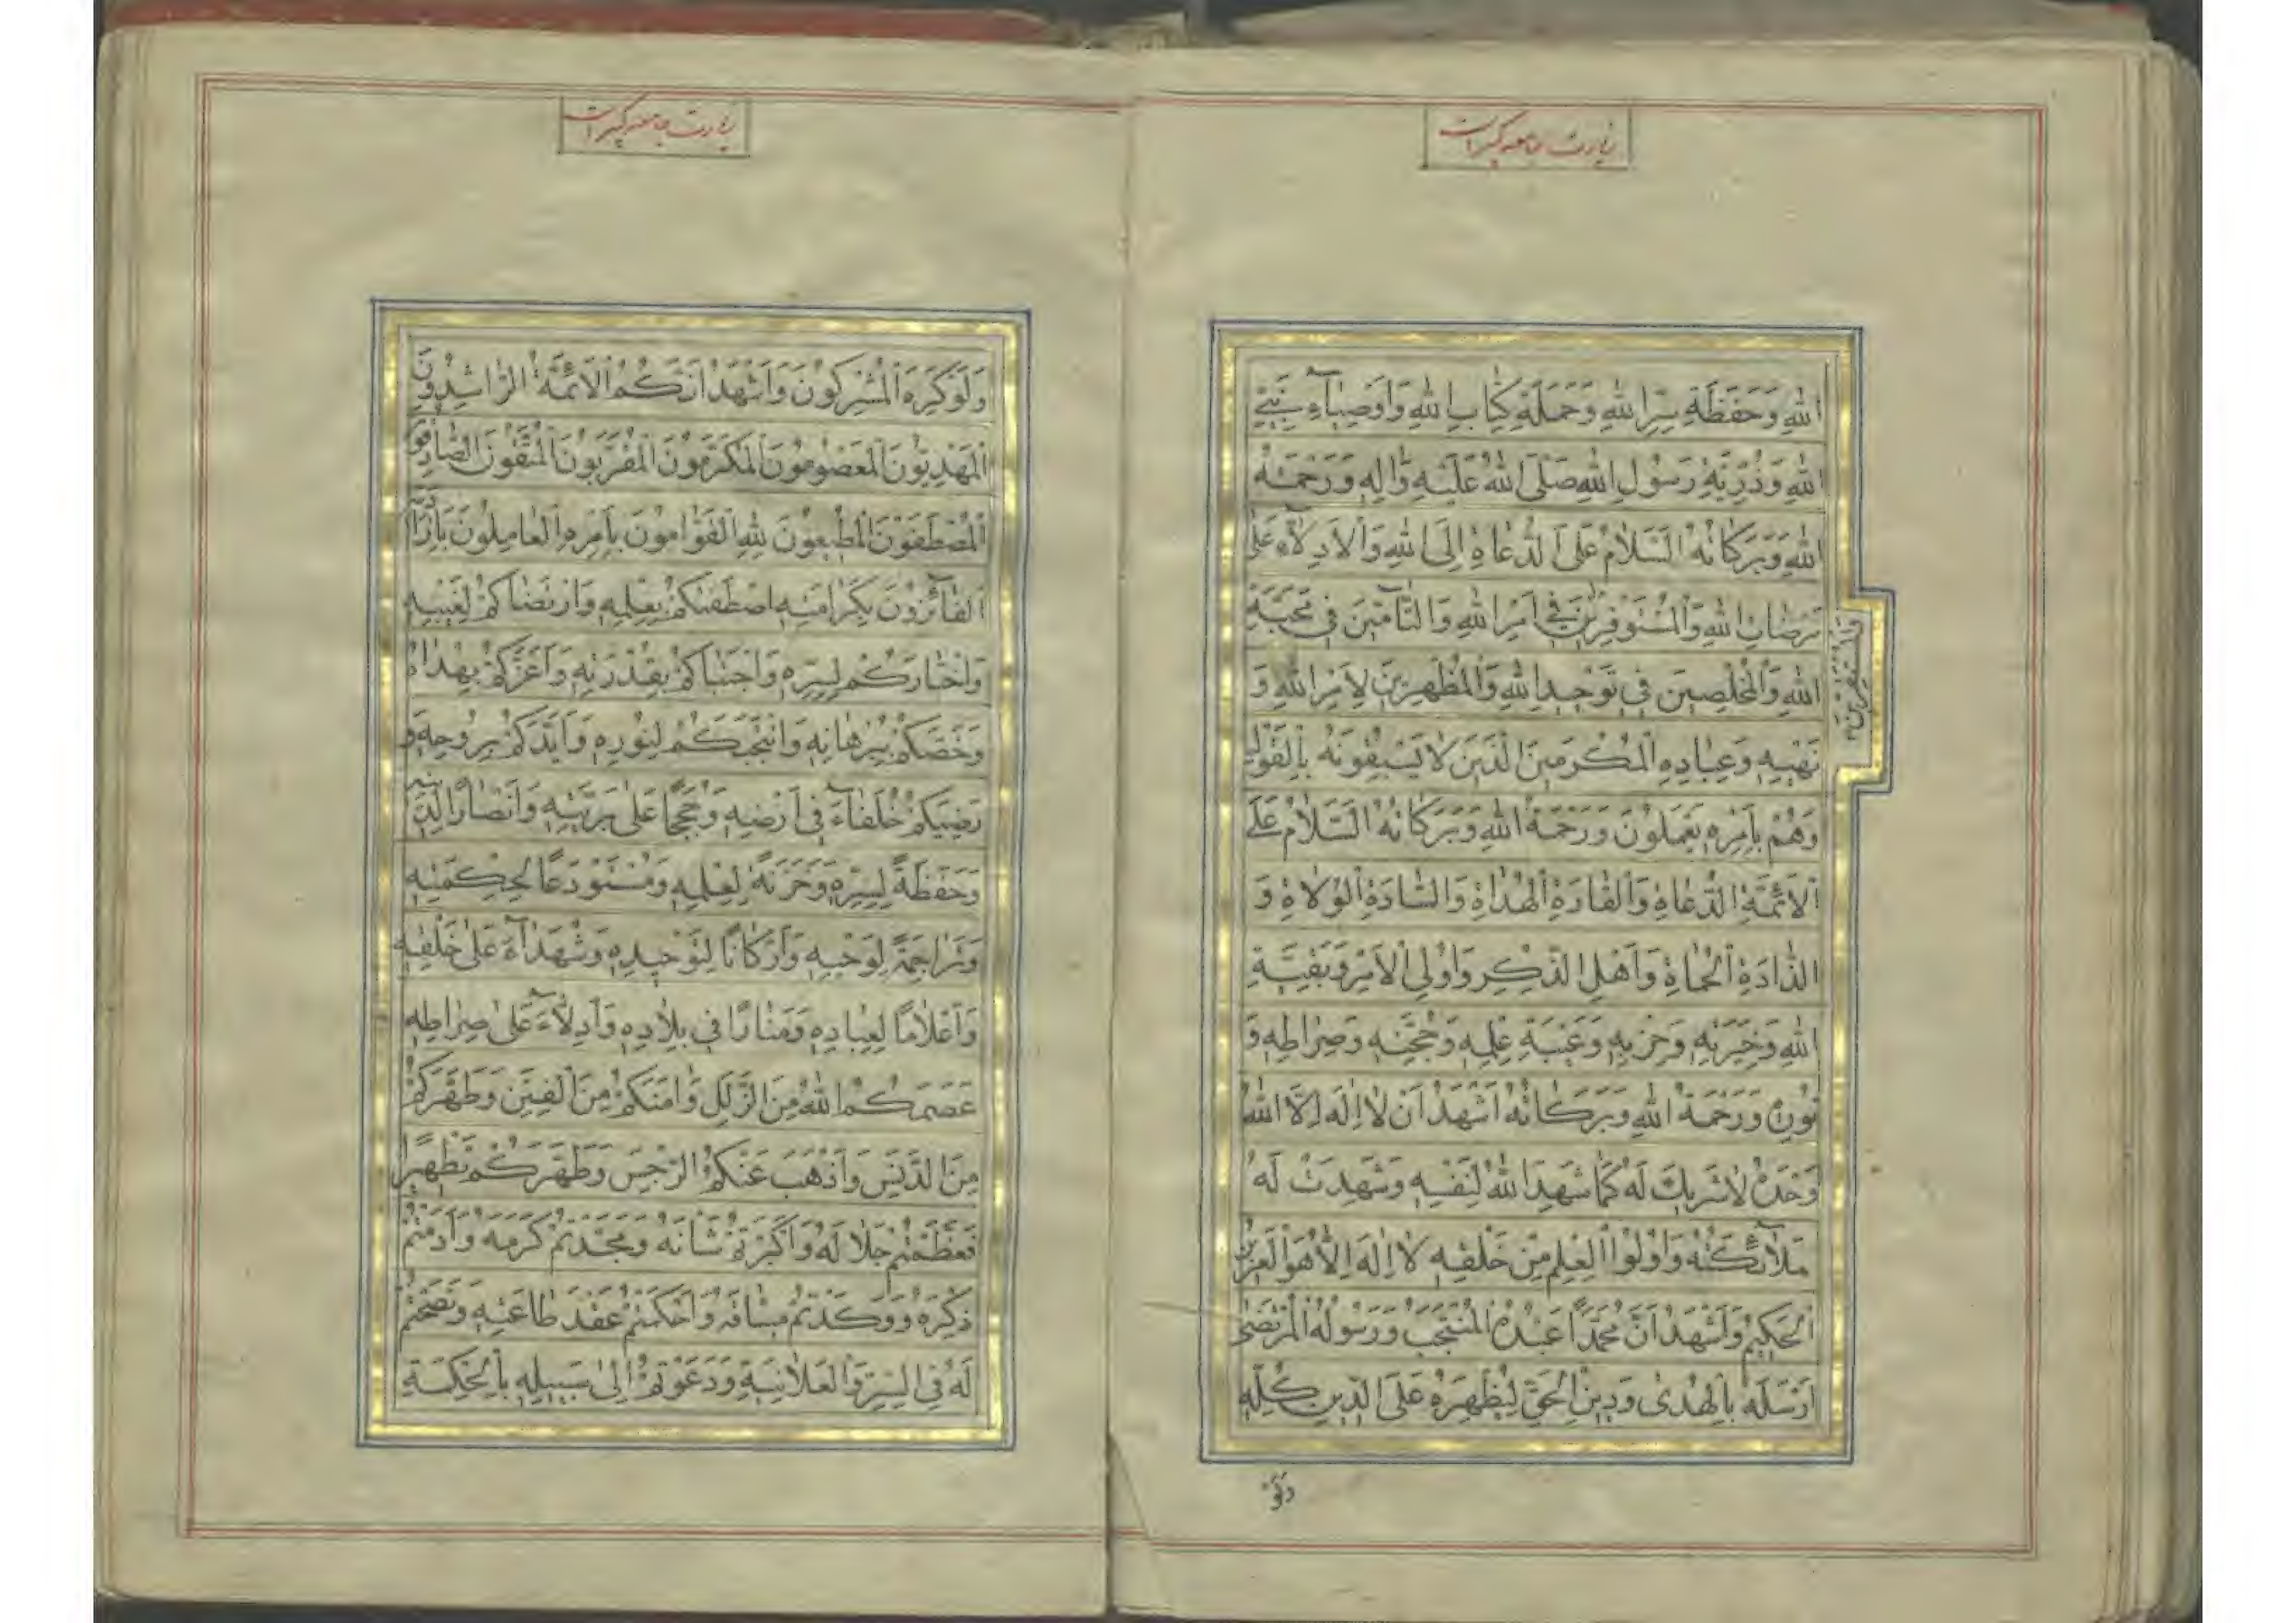 زیارت جامعه کبیر است
اللهِ وَحَفَظَةِ سِرِّ اللهِ وَحَمَلَةِ كِتَابِ اللهِ وَاَوْصِيَآءِ نَبِيِّ
اللهِ وَذُرِّيَّةِ رَسُولِ اللهِ صَلَّى اللهُ عَلَيْهِ وَاٰلِهِ وَرَحْمَتُهُ
اللهِ وَبَرَكَاتُهُ اَلسَّلَامُ عَلَى الدُّعَاةِ اِلَى اللهِ وَالْاَدِلَّآءِ عَلٰى
مَرْضَاتِ اللهِ وَالْمُسْتَوْفِرِينَ فِي اَمْرِ اللهِ وَالتَّآمِّينَ فِي مَحَبَّةِ
اللهِ وَالْمُخْلِصِينَ فِي تَوْحِيدِ اللهِ وَالْمُظْهِرِينَ لِاَمْرِ اللهِ وَ
نَهْيِهِ وَعِبَادِهِ الْمُكْرَمِينَ الَّذِينَ لَا يَسْبِقُونَهُ بِالْقَوْلِ
وَهُمْ بِاَمْرِهِ يَعْمَلُونَ وَرَحْمَةُ اللهِ وَبَرَكَاتُهُ اَلسَّلَامُ عَلَى
الْاَئِمَّةِ الدُّعَاةِ وَالْقَادَةِ الْهُدَاةِ وَالسَّادَةِ الْوُلَاةِ وَ
الذَّادَةِ الْحُمَاةِ وَاَهْلِ الذِّكْرِ وَاُولِي الْاَمْرِ وَبَقِيَّةِ
اللهِ وَخِيَرَتِهِ وَحِزْبِهِ وَعَيْبَةِ عِلْمِهِ وَحُجَّتِهِ وَصِرَاطِهِ وَ
نُورِهِ وَرَحْمَةُ اللهِ وَبَرَكَاتُهُ اَشْهَدُ اَنْ لَا اِلٰهَ اِلَّا اللهُ
وَحْدَهُ لَا شَرِيكَ لَهُ كَمَا شَهِدَ اللهُ لِنَفْسِهِ وَشَهِدَتْ لَهُ
مَلَآئِكَتُهُ وَاُولُوا الْعِلْمِ مِنْ خَلْقِهِ لَا اِلٰهَ اِلَّا هُوَ الْعَزِيزُ
الْحَكِيمُ وَاَشْهَدُ اَنَّ مُحَمَّدًا عَبْدُهُ الْمُنْتَجَبُ وَرَسُولُهُ الْمُرْتَضٰى
اَرْسَلَهُ بِالْهُدٰى وَدِينِ الْحَقِّ لِيُظْهِرَهُ عَلَى الدِّينِ كُلِّهِ
وَلَوْ
زیارت جامعه کبیر است
وَلَوْ كَرِهَ الْمُشْرِكُونَ وَاَشْهَدُ اَنَّكُمُ الْاَئِمَّةُ الرَّاشِدُونَ
الْمَهْدِيُّونَ الْمَعْصُومُونَ الْمُكَرَّمُونَ الْمُقَرَّبُونَ الْمُتَّقُونَ الصَّادِقُونَ
الْمُصْطَفَوْنَ الْمُطِيعُونَ لِلّٰهِ الْقَوَّامُونَ بِاَمْرِهِ الْعَامِلُونَ بِاِرَادَتِهِ
الْفَآئِزُونَ بِكَرَامَتِهِ اصْطَفٰيكُمْ بِعِلْمِهِ وَارْتَضَاكُمْ لِغَيْبِهِ
وَاخْتَارَكُمْ لِسِرِّهِ وَاجْتَبَاكُمْ بِقُدْرَتِهِ وَاَعَزَّكُمْ بِهُدَاهُ
وَخَصَّكُمْ بِبُرْهَانِهِ وَانْتَجَبَكُمْ لِنُورِهِ وَاَيَّدَكُمْ بِرُوحِهِ وَ
رَضِيَكُمْ خُلَفَآءَ فِي اَرْضِهِ وَحُجَجًا عَلٰى بَرِيَّتِهِ وَاَنْصَارًا لِدِينِهِ
وَحَفَظَةً لِسِرِّهِ وَخَزَنَةً لِعِلْمِهِ وَمُسْتَوْدَعًا لِحِكْمَتِهِ
وَتَرَاجِمَةً لِوَحْيِهِ وَاَرْكَانًا لِتَوْحِيدِهِ وَشُهَدَآءَ عَلٰى خَلْقِهِ
وَاَعْلَامًا لِعِبَادِهِ وَمَنَارًا فِي بِلَادِهِ وَاَدِلَّآءَ عَلٰى صِرَاطِهِ
عَصَمَكُمُ اللهُ مِنَ الزَّلَلِ وَاٰمَنَكُمْ مِنَ الْفِتَنِ وَطَهَّرَكُمْ
مِنَ الدَّنَسِ وَاَذْهَبَ عَنْكُمُ الرِّجْسَ وَطَهَّرَكُمْ تَطْهِيرًا
فَعَظَّمْتُمْ جَلَالَهُ وَاَكْبَرْتُمْ شَانَهُ وَمَجَّدْتُمْ كَرَمَهُ وَاَدَمْتُمْ
ذِكْرَهُ وَوَكَّدْتُمْ مِيثَاقَهُ وَاَحْكَمْتُمْ عَقْدَ طَاعَتِهِ وَنَصَحْتُمْ
لَهُ فِي السِّرِّ وَالْعَلَانِيَةِ وَدَعَوْتُمْ اِلٰى سَبِيلِهِ بِالْحِكْمَةِ